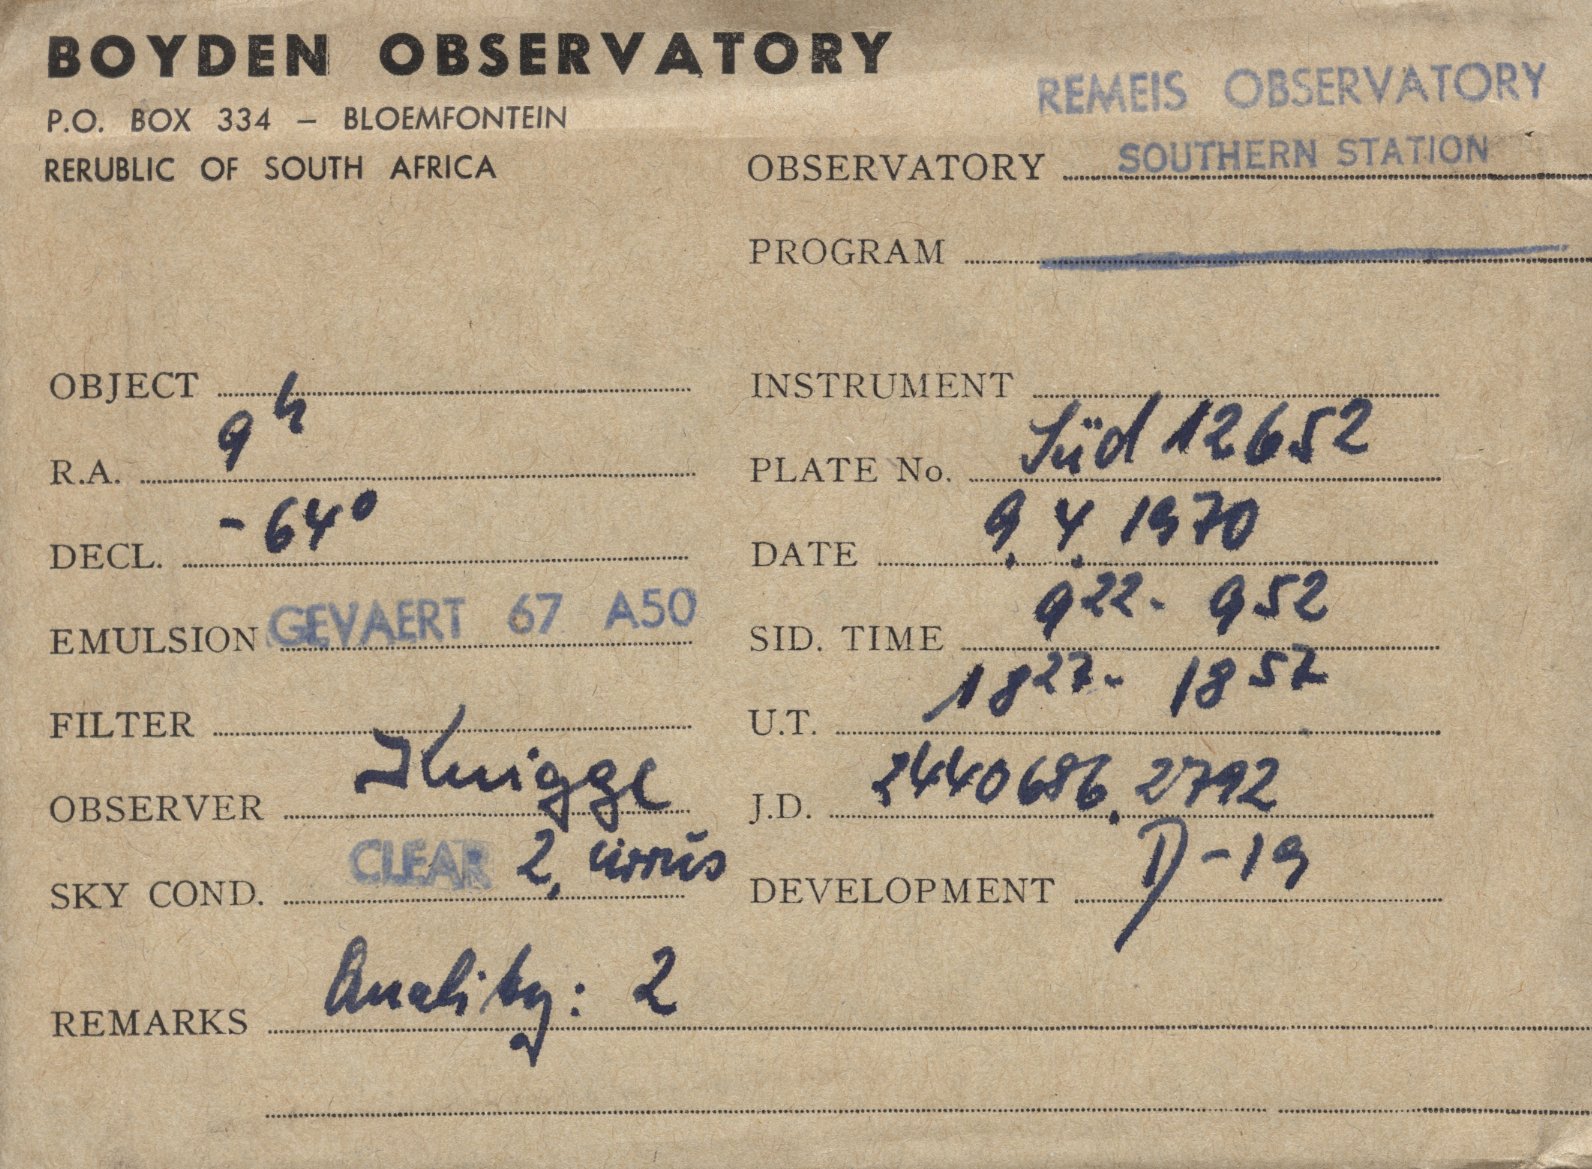 BOYDEN OBSERVATORY
P.O. BOX 334 – BLOEMFONTEIN
RERUBLIC OF SOUTH AFRICA
REMEIS OBSERVATORY
OBSERVATORY SOUTHERN STATION
PROGRAM
OBJECT
R.A. 9h
DECL. -64°
EMULSION GEVAERT 67 A50
FILTER
OBSERVER Knigge
SKY COND. CLEAR 2, cirrus
INSTRUMENT
PLATE No. Süd 12652
DATE 9. 4. 1970
SID. TIME 9 22 - 9 52
U.T. 18 27 - 18 57
J.D. 2440686.2792
DEVELOPMENT D-19
REMARKS Quality: 2